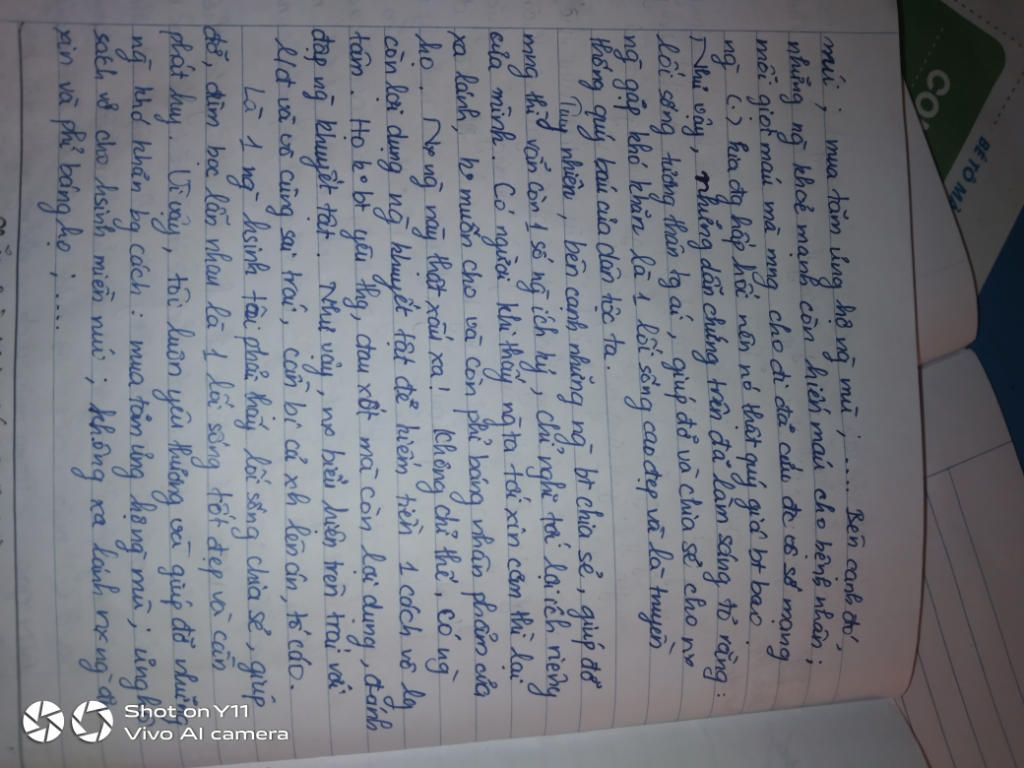 núi ; mua tăm ủng hộ ng mù ; ..... Bên cạnh đó,
những ng khoẻ mạnh còn hiến máu cho bệnh nhân ;
mỗi giọt máu mà mng cho đi đã cứu đc vs số mạng
ng (.) gia đg hấp hối nên nó thật quý giá bt bao.
Như vậy, những dẫn chứng trên đã làm sáng tỏ rằng :
lối sống tương thân tg ái, giúp đỡ và chia sẻ cho n~
ng gặp khó khăn là 1 lối sống cao đẹp và là truyền
thống quý báu của dân tộc ta.
Tuy nhiên, bên cạnh những ng bt chia sẻ, giúp đỡ
mng thì vẫn còn 1 số ng ích kỷ, chỉ nghĩ tới lợi ích riêng
của mình. Có người khi thấy ng ta tới xin cơm thì lại
xa lánh, ko muốn cho và còn phỉ báng nhân phẩm của
họ. N~ ng này thật xấu xa! Không chỉ thế, có ng
còn lợi dụng ng khuyết tật để kiếm tiền 1 cách vô lý
tâm. Họ ko bt yêu thg, đau xót mà còn lợi dụng, đánh
đập ng khuyết tật. Như vậy, n~ biểu hiện trên trái với
lđđ và vô cùng sai trái, cần bị cả xh lên án, tố cáo.
Là 1 ng hsinh tôi phải thấy lối sống chia sẻ, giúp
đỡ, đùm bọc lẫn nhau là 1 lối sống tốt đẹp và cần
phát huy. Vì vậy, tôi luôn yêu thương và giúp đỡ những
ng khó khăn bg cách : mua tăm ủng hộ ng mù ; ủng hộ
sách vở cho hsinh miền núi ; không xa lánh n~ ng
xin và phỉ báng họ ; .....
CO
BÉ TÔ MÀ
Shot on Y11
Vivo AI camera